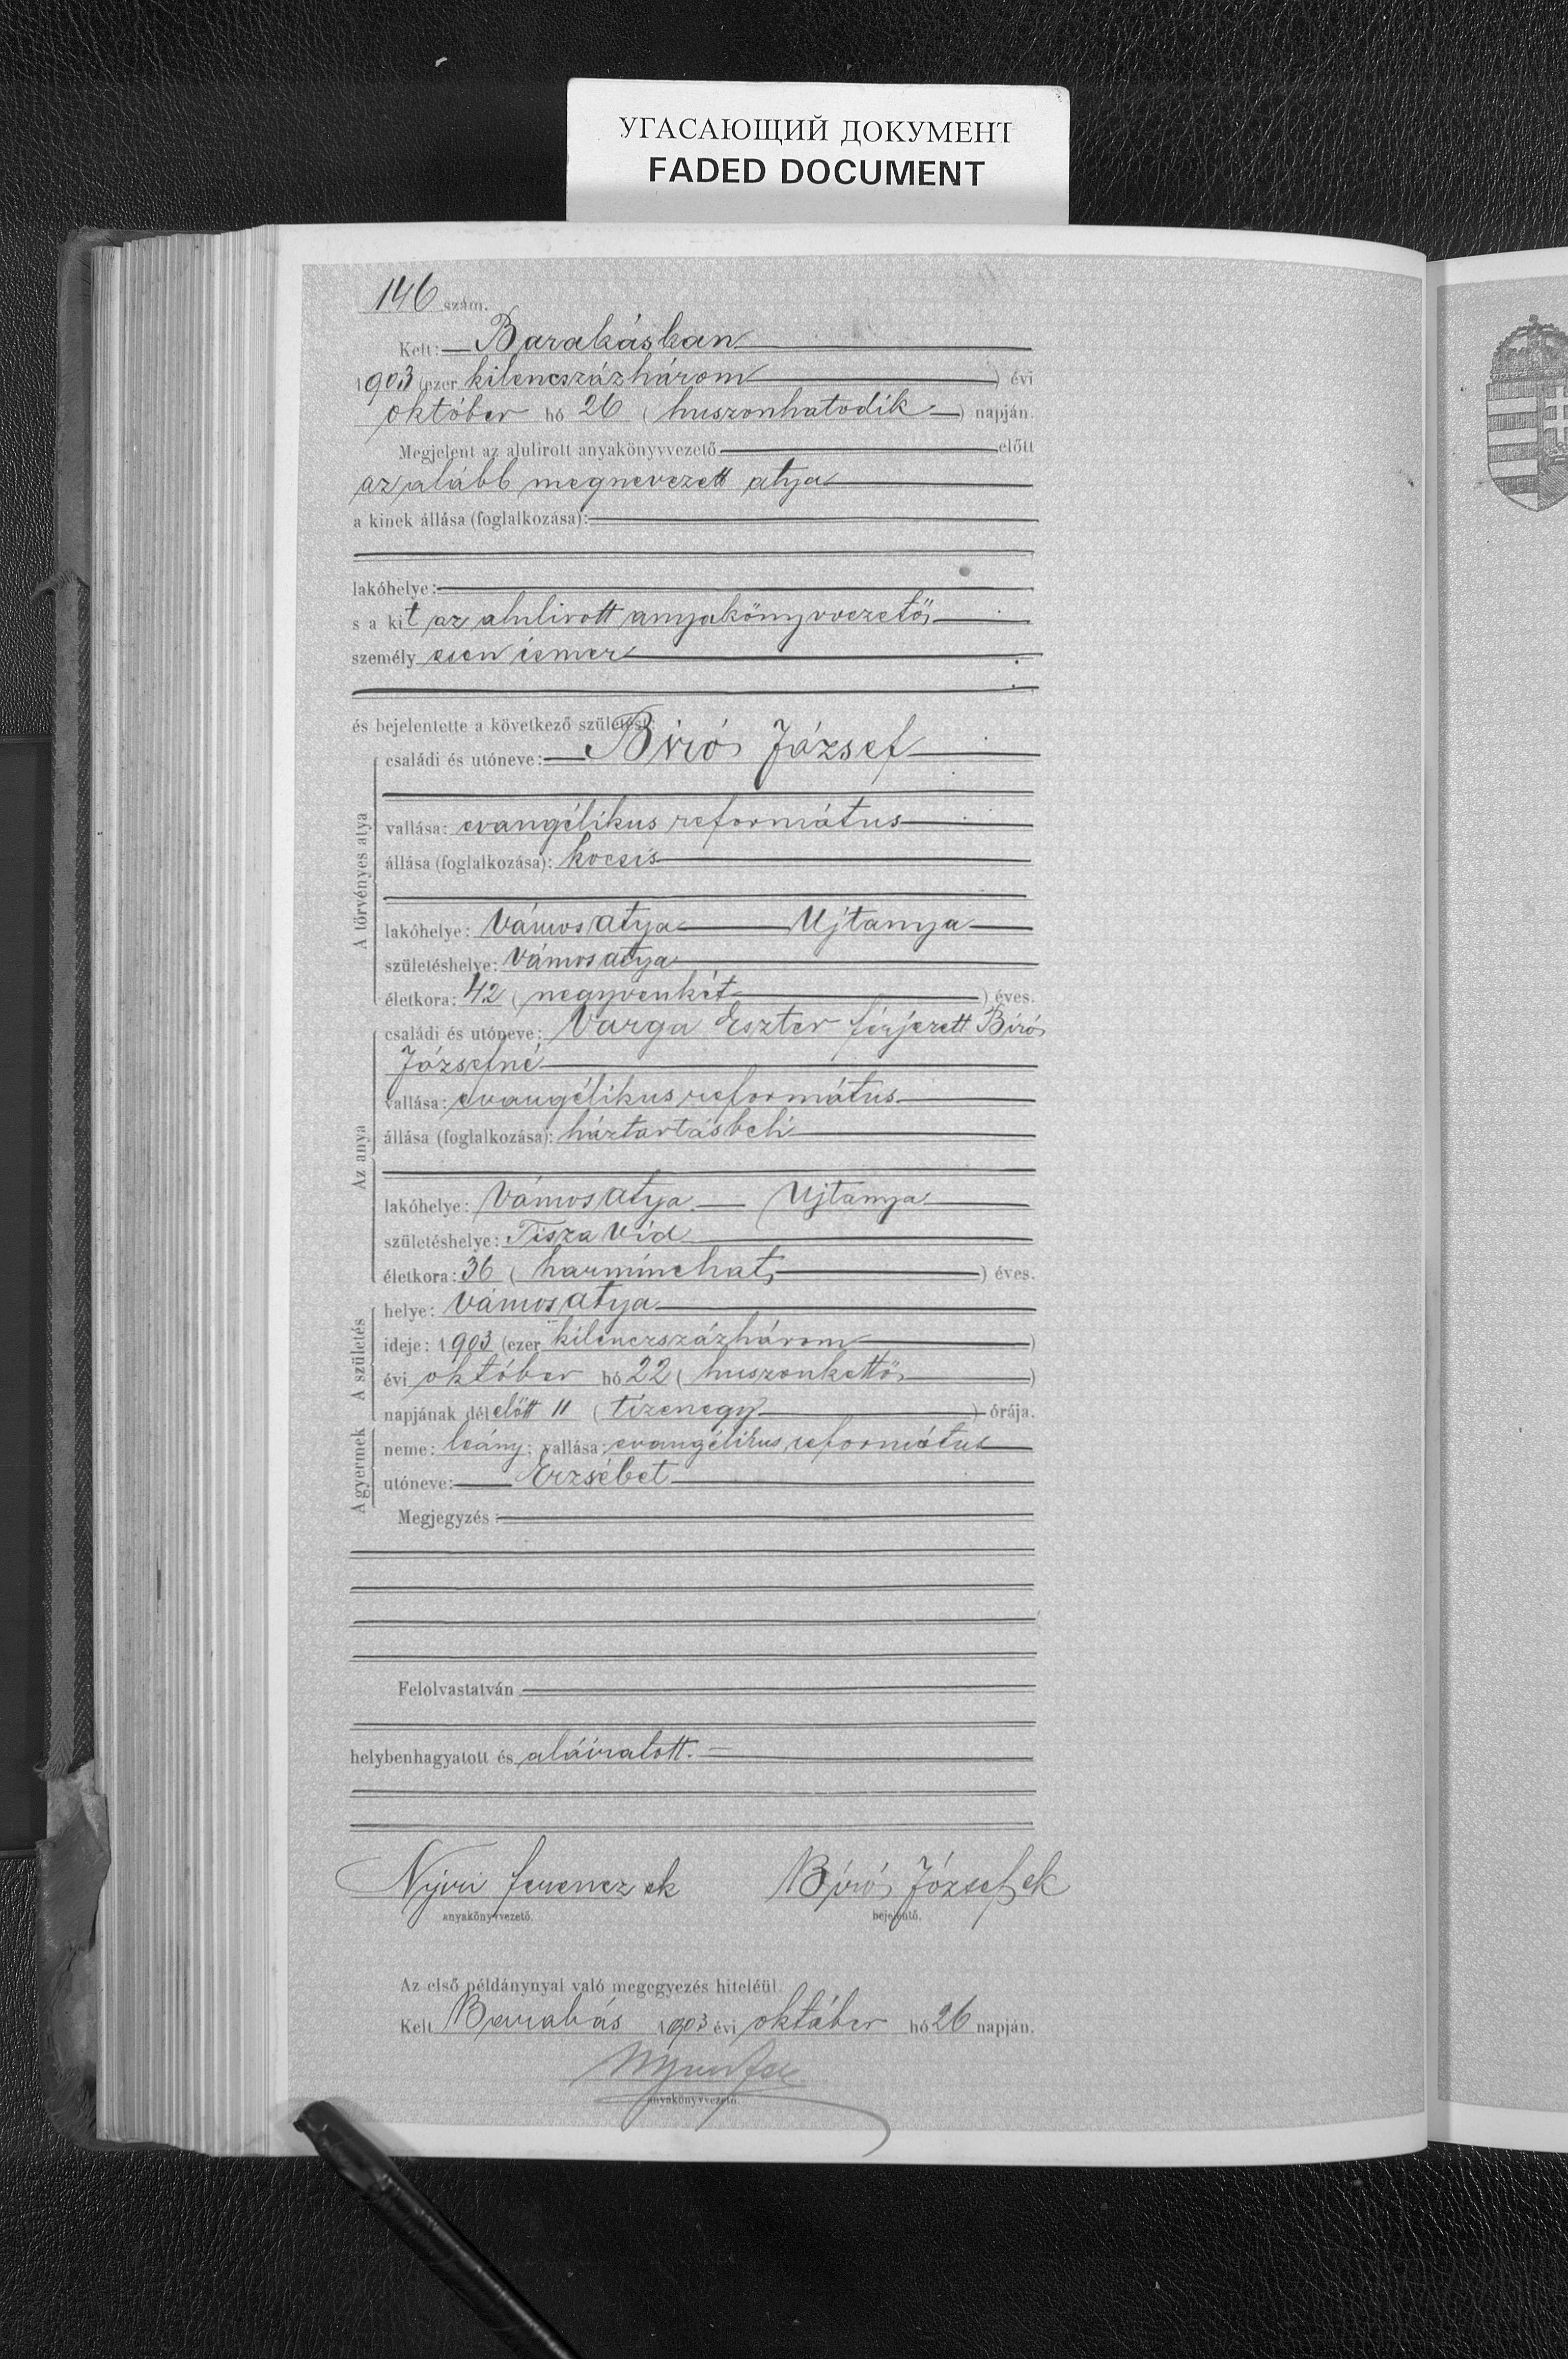 УГАСАЮЩИЙ ДОКУМЕНТ
FADED DOCUMENT
146 szám.
Kelt: Barabásban
1903 (ezer kilencszázhárom) évi
október hó 26 (huszonhatodik) napján.
Megjelent az alulirott anyakönyvvezető előtt
az alább megnevezett atya
a kinek állása (foglalkozása):
lakóhelye:
s a kit az alulirott anyakönyvvezető
személyesen ismer
és bejelentette a következő születést:
A törvényes atya
családi és utóneve: Biró József
vallása: evangélikus református
állása (foglalkozása): kocsis
lakóhelye: Vámosatya Ujtanya
születéshelye: Vámosatya
életkora: 42 (negyvenkét) éves.
Az anya
családi és utóneve: Varga Eszter férjezett Biró
Józsefné
vallása: evangélikus református
állása (foglalkozása): háztartásbeli
lakóhelye: Vámosatya Ujtanya
születéshelye: Tisza Vid
életkora: 36 (harminchat) éves.
A születés
helye: Vámosatya
ideje: 1903 (ezer kilenczszázhárom)
évi október hó 22 (huszonkettő)
napjának délelőtt 11 (tizenegy) órája.
A gyermek
neme: leány; vallása: evangélikus református
utóneve: Erzsébet
Megjegyzés:
Felolvastatván
helybenhagyatott és aláiratott.
Nyiri Ferencz sk Biró József sk
anyakönyvvezető. bejelentő.
Az első példánynyal való megegyezés hiteléül.
Kelt Barabás 1903 évi október hó 26 napján.
anyakönyvvezető.